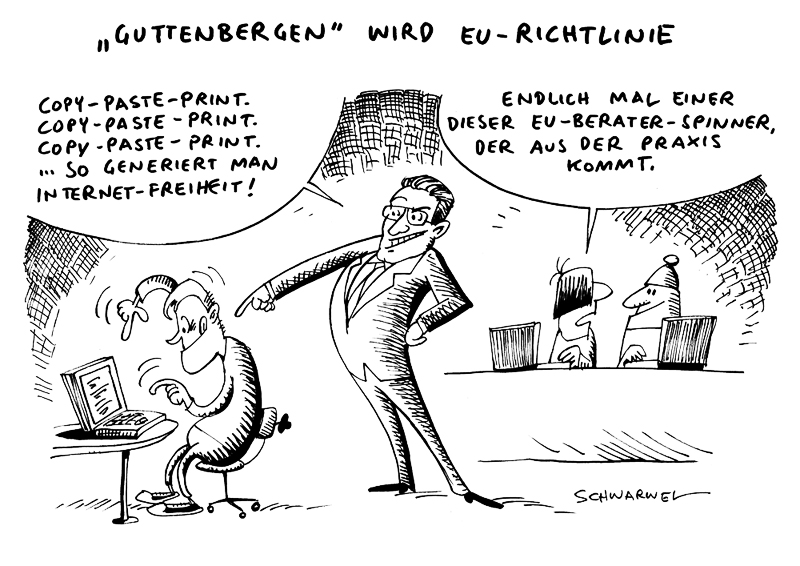 „GUTTENBERGEN” WIRD EU-RICHTLINIE
COPY-PASTE-PRINT.
COPY-PASTE-PRINT.
COPY-PASTE-PRINT.
... SO GENERIERT MAN
INTERNET-FREIHEIT!
ENDLICH MAL EINER
DIESER EU-BERATER-SPINNER,
DER AUS DER PRAXIS
KOMMT.
SCHWARWEL